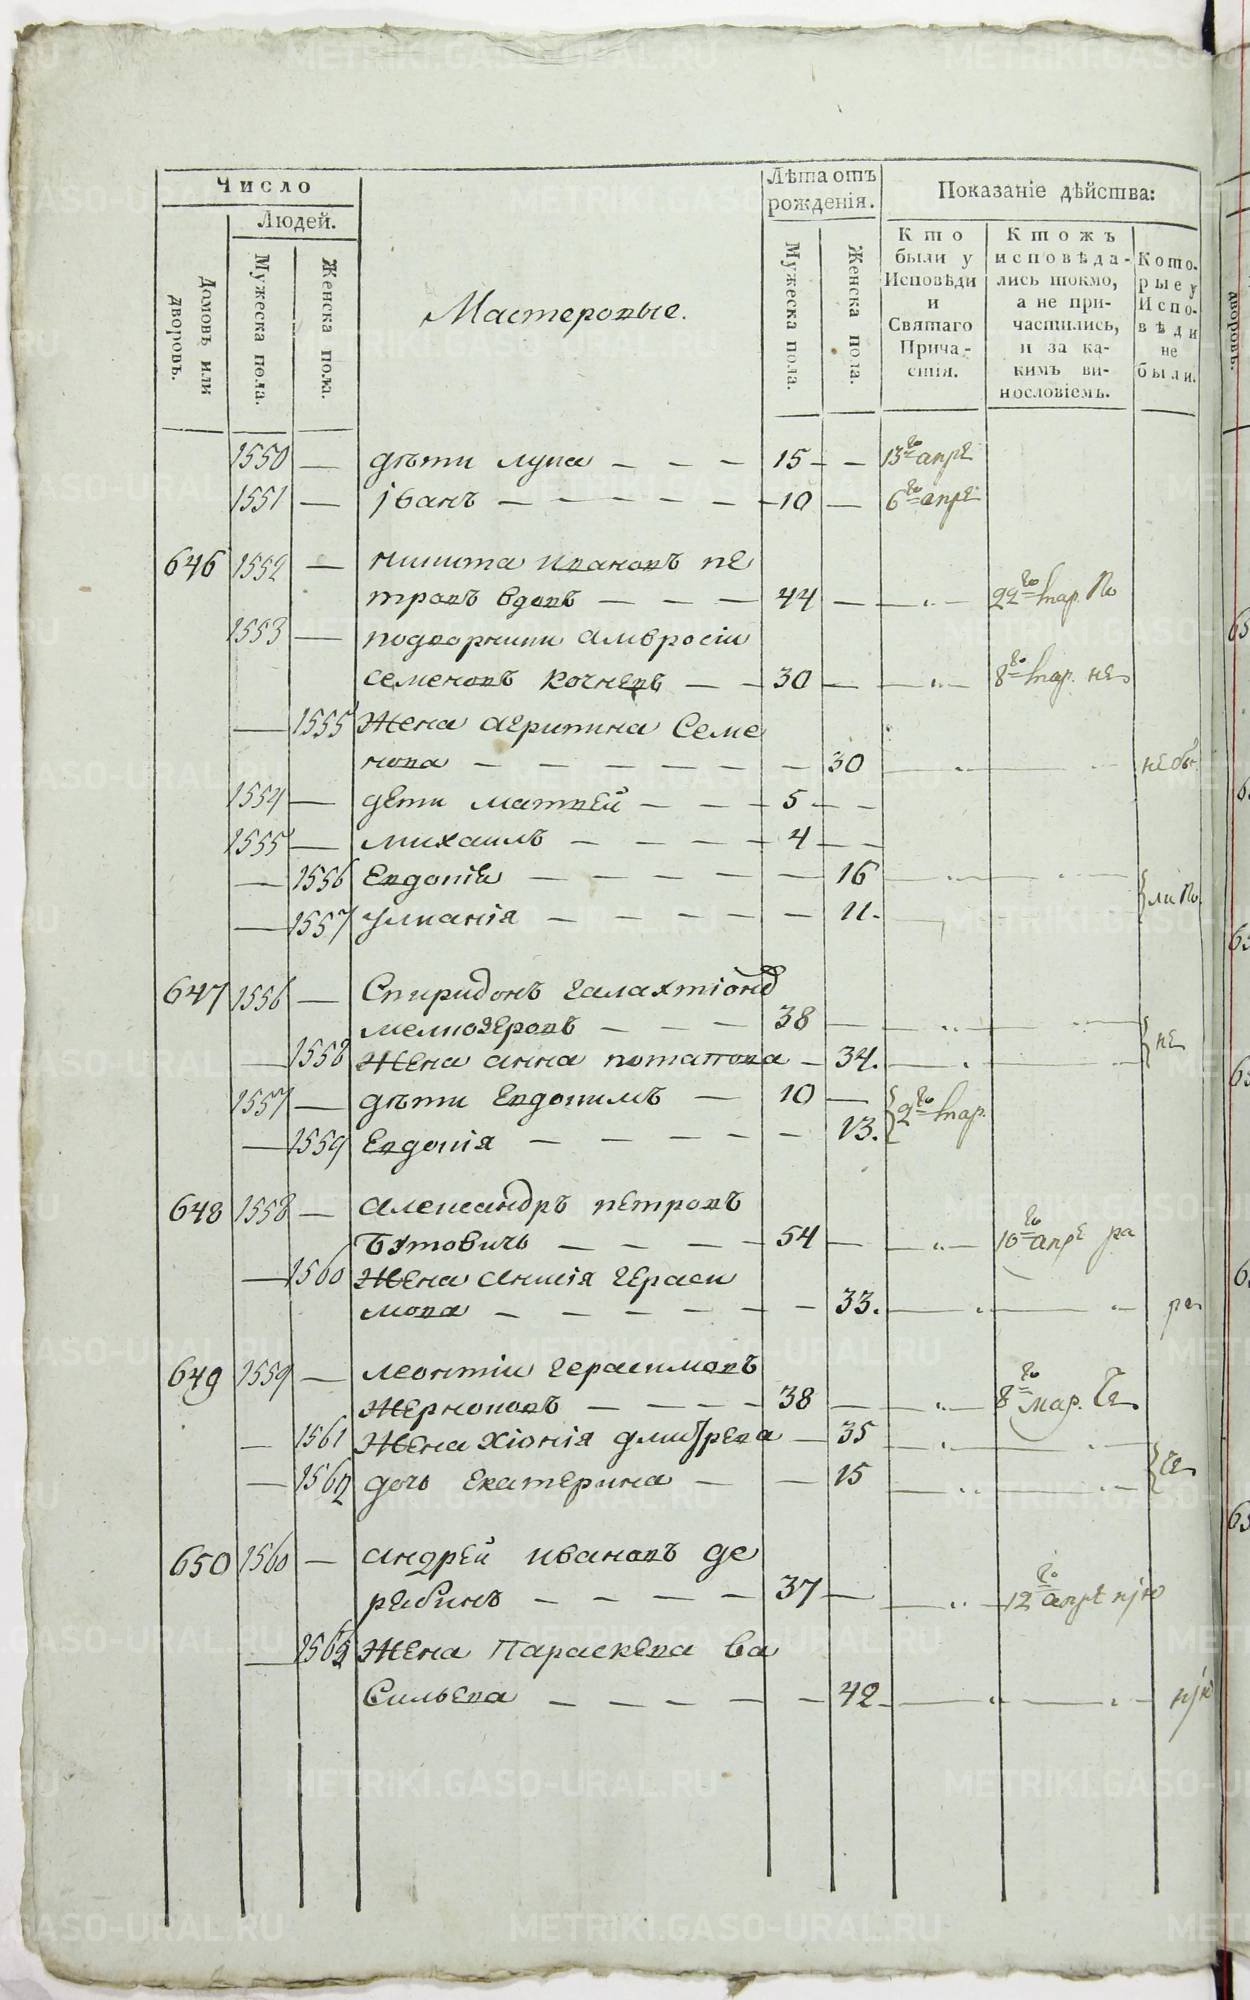 Число
Лѣта отъ рожденія.
Показаніе дѣйства:
Людей.
Домовъ или дворовъ.
Мужеска пола.
Женска пола.
Мастеровые.
Мужеска пола.
Женска пола.
Кто были у Исповѣди и Святаго Прича-стія.
Ктожъ исповѣда-лись токмо, а не при-частились, и за ка-кимъ ви-нословіемъ.
Кото-рые у Испо-вѣди не были.
1550 — дѣти лука — — — 15 — — 13го апре
1551 — іванъ — — — — — — 10 — 6го апре
646 1552 — никита ивановъ пе
тровъ вдовъ — — — 44 — — „ — 22го мар. по
1553 — подворники амвросіи
семеновъ кочневъ — — 30 — — „ — 8го мар. не
— 1555 жена агрипина семе
нова — — — — — — — 30 — „ — небы
1554 — дети матвей — — — 5 — —
1555 — михаилъ — — — — 4 — —
— 1556 евдокіи — — — — — — 16
— 1557 улианія — — — — — — 11.
647 1556 — спиридонъ галахтіонов
мелкозеровъ — — — 38 — — „ — не
— 1558 жена анна потапова — 34. — „ —
1557 — дѣти евдокимъ — 10 — 2го мар.
— 1559 евдокія — — — — — 13.
648 1558 — александръ петровъ
бутовичь — — — — 54 — — „ — 10го апре ра
— 1560 жена акилія гераси
мова — — — — — — 33. — „ — ра
649 1559 — леонтіи герасимовъ
жерноковъ — — — — 38 — — „ — 8го мар. че
— 1561 жена хіонія дмитрева — 35 — „ —
— 1562 дочь екатерина — — 15 — „ — че
650 1560 — андрей ивановъ де
рябинъ — — — — 37 — — „ — 12го апре
— жена параскева ва
сильева — — — — — 42 — „ —